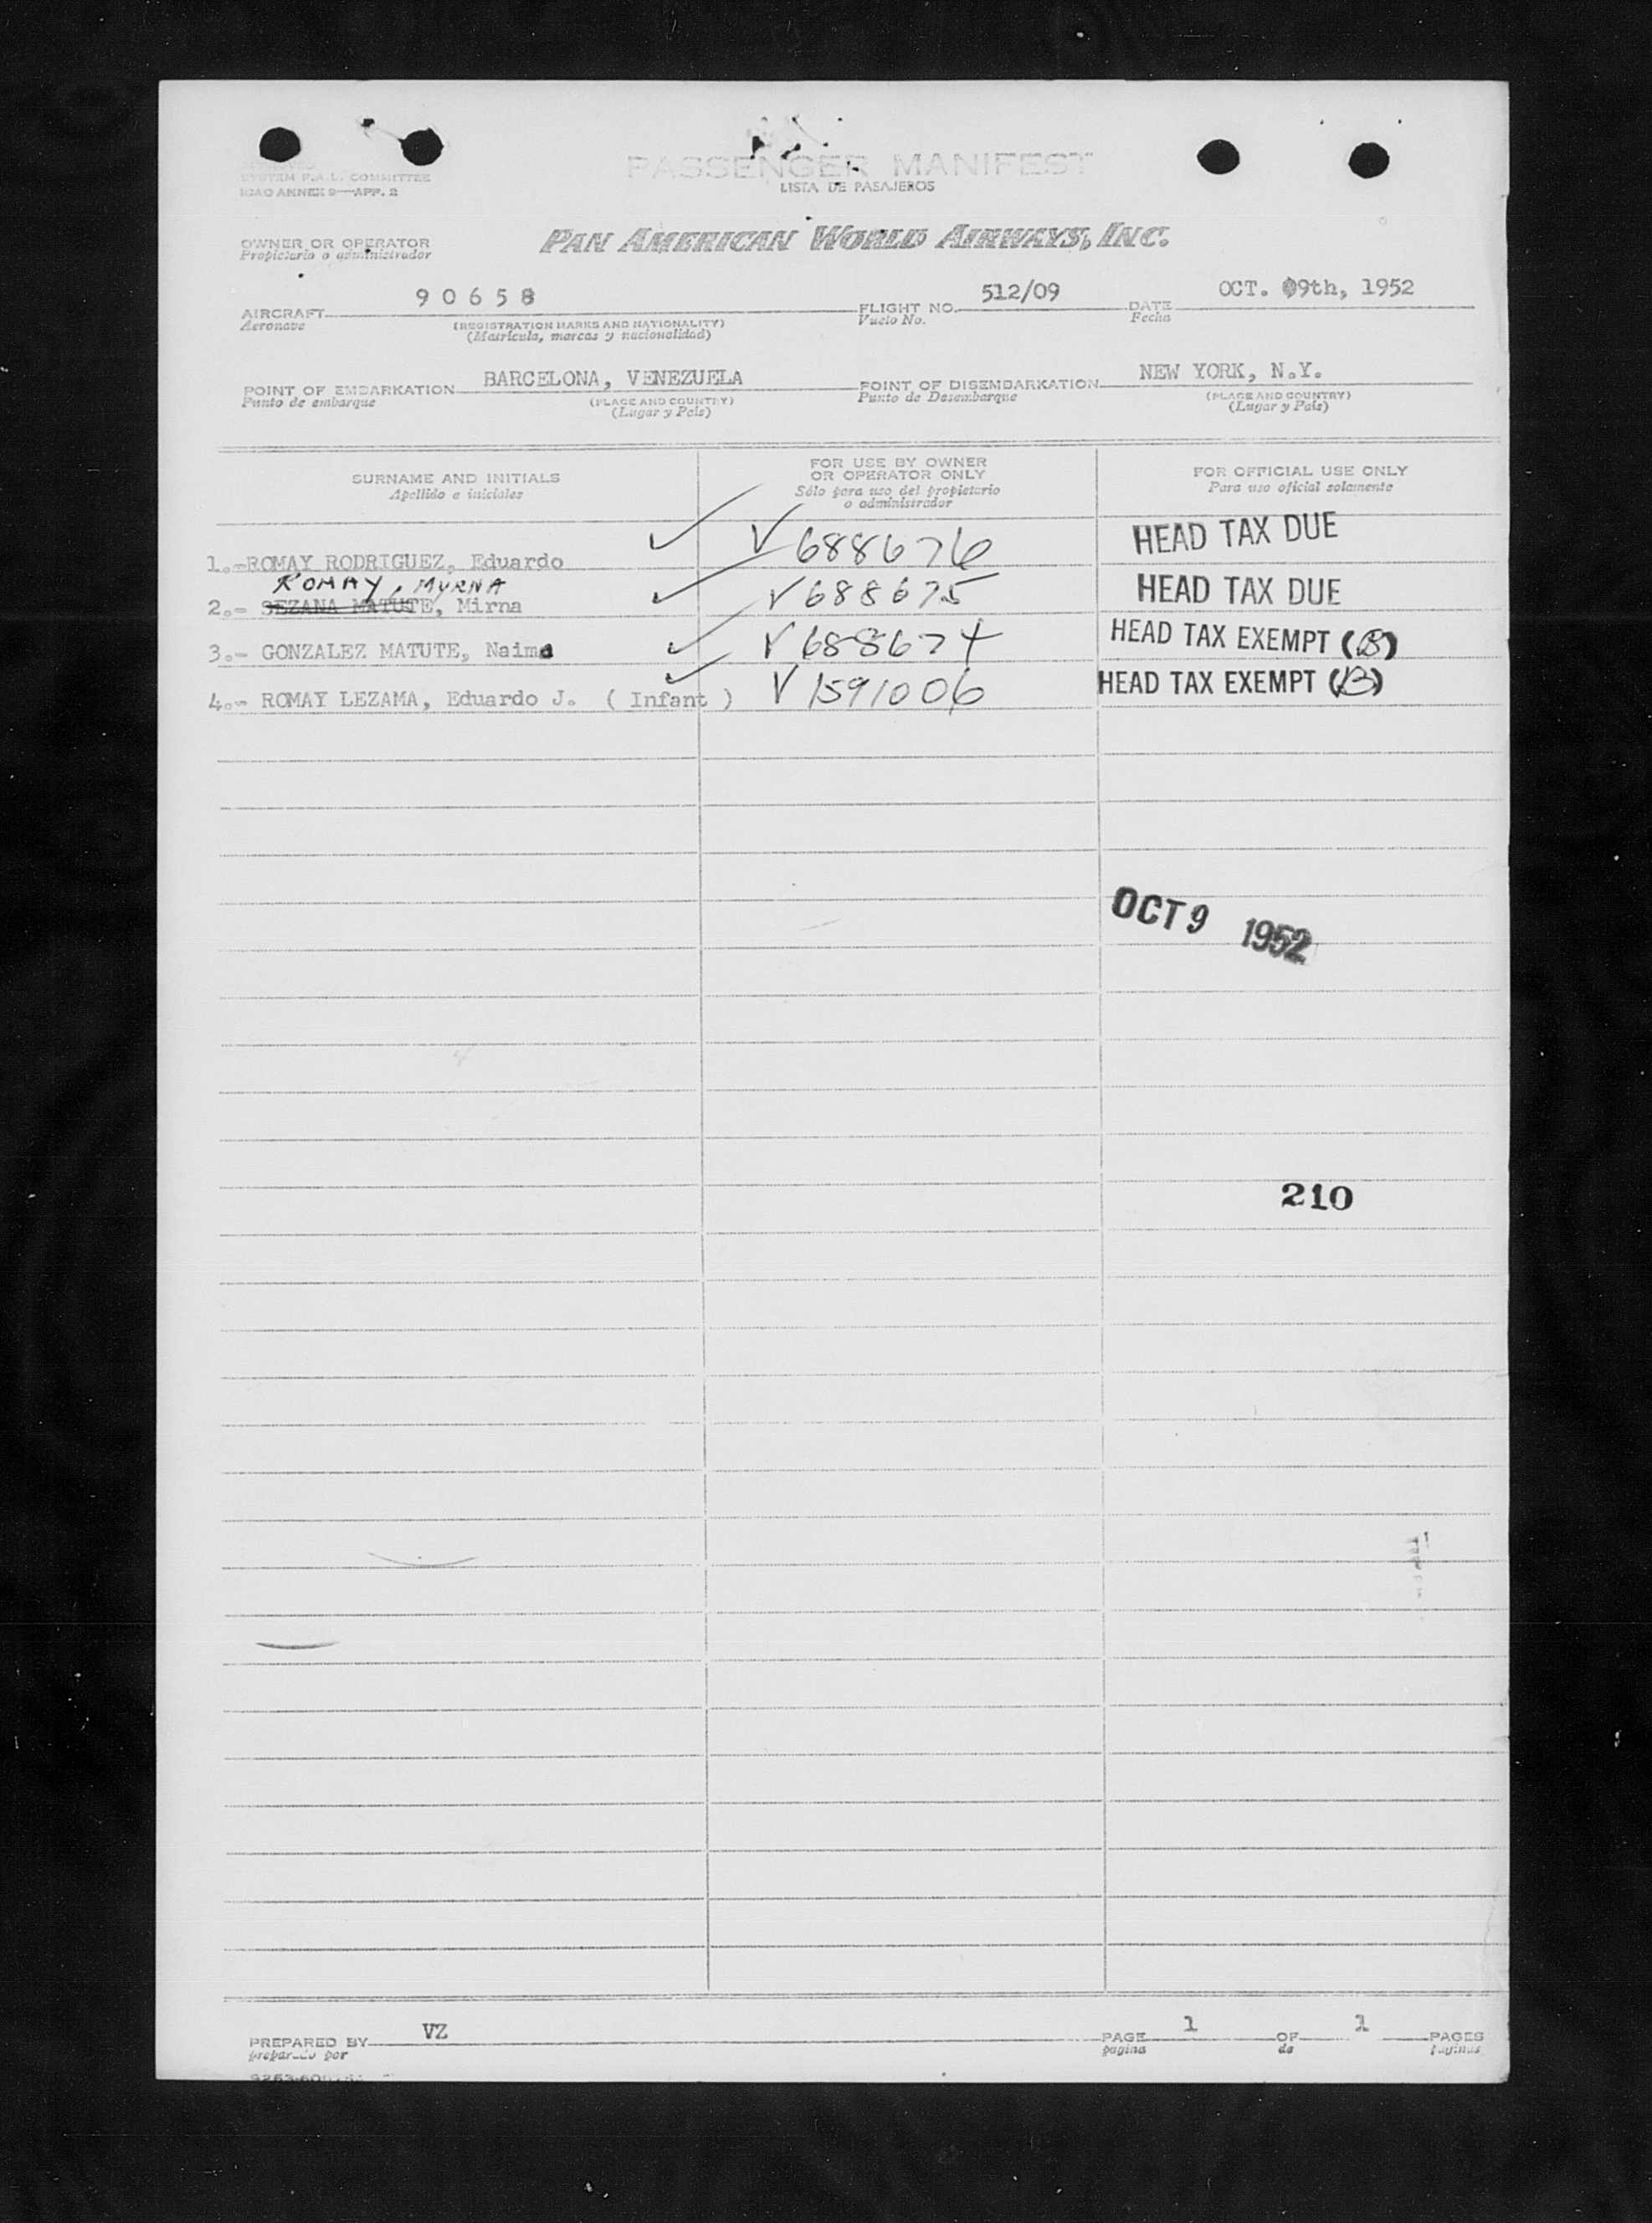 PASSENGER MANIFEST
SYSTEM F.A.L. COMMITTEE
LISTA DE PASAJEROS
ICAO ANNEX 9—APP. 2
PAN AMERICAN WORLD AIRWAYS, INC.
OWNER OR OPERATOR
Propietario o administrador
90658 512/09 OCT. 09th, 1952
AIRCRAFT FLIGHT NO. DATE
Aeronave (REGISTRATION MARKS AND NATIONALITY) Vuelo No. Fecha
(Matrícula, marcas y nacionalidad)
BARCELONA, VENEZUELA NEW YORK, N.Y.
POINT OF EMBARKATION POINT OF DISEMBARKATION
Punto de embarque (PLACE AND COUNTRY) Punto de Desembarque (PLACE AND COUNTRY)
(Lugar y País) (Lugar y País)
SURNAME AND INITIALS FOR USE BY OWNER OR OPERATOR ONLY FOR OFFICIAL USE ONLY
Apellido e iniciales Sólo para uso del propietario o administrador Para uso oficial solamente
1.-ROMAY RODRIGUEZ, Eduardo V688676 HEAD TAX DUE
ROMAY, MYRNA
2.- SEZANA MATUTE, Mirna V688675 HEAD TAX DUE
3.- GONZALEZ MATUTE, Naima V688674 HEAD TAX EXEMPT (B)
4.- ROMAY LEZAMA, Eduardo J. ( Infant ) V1591006 HEAD TAX EXEMPT (B)
OCT 9 1952
210
VZ 1 1
PREPARED BY PAGE OF PAGES
preparado por pagina de paginas